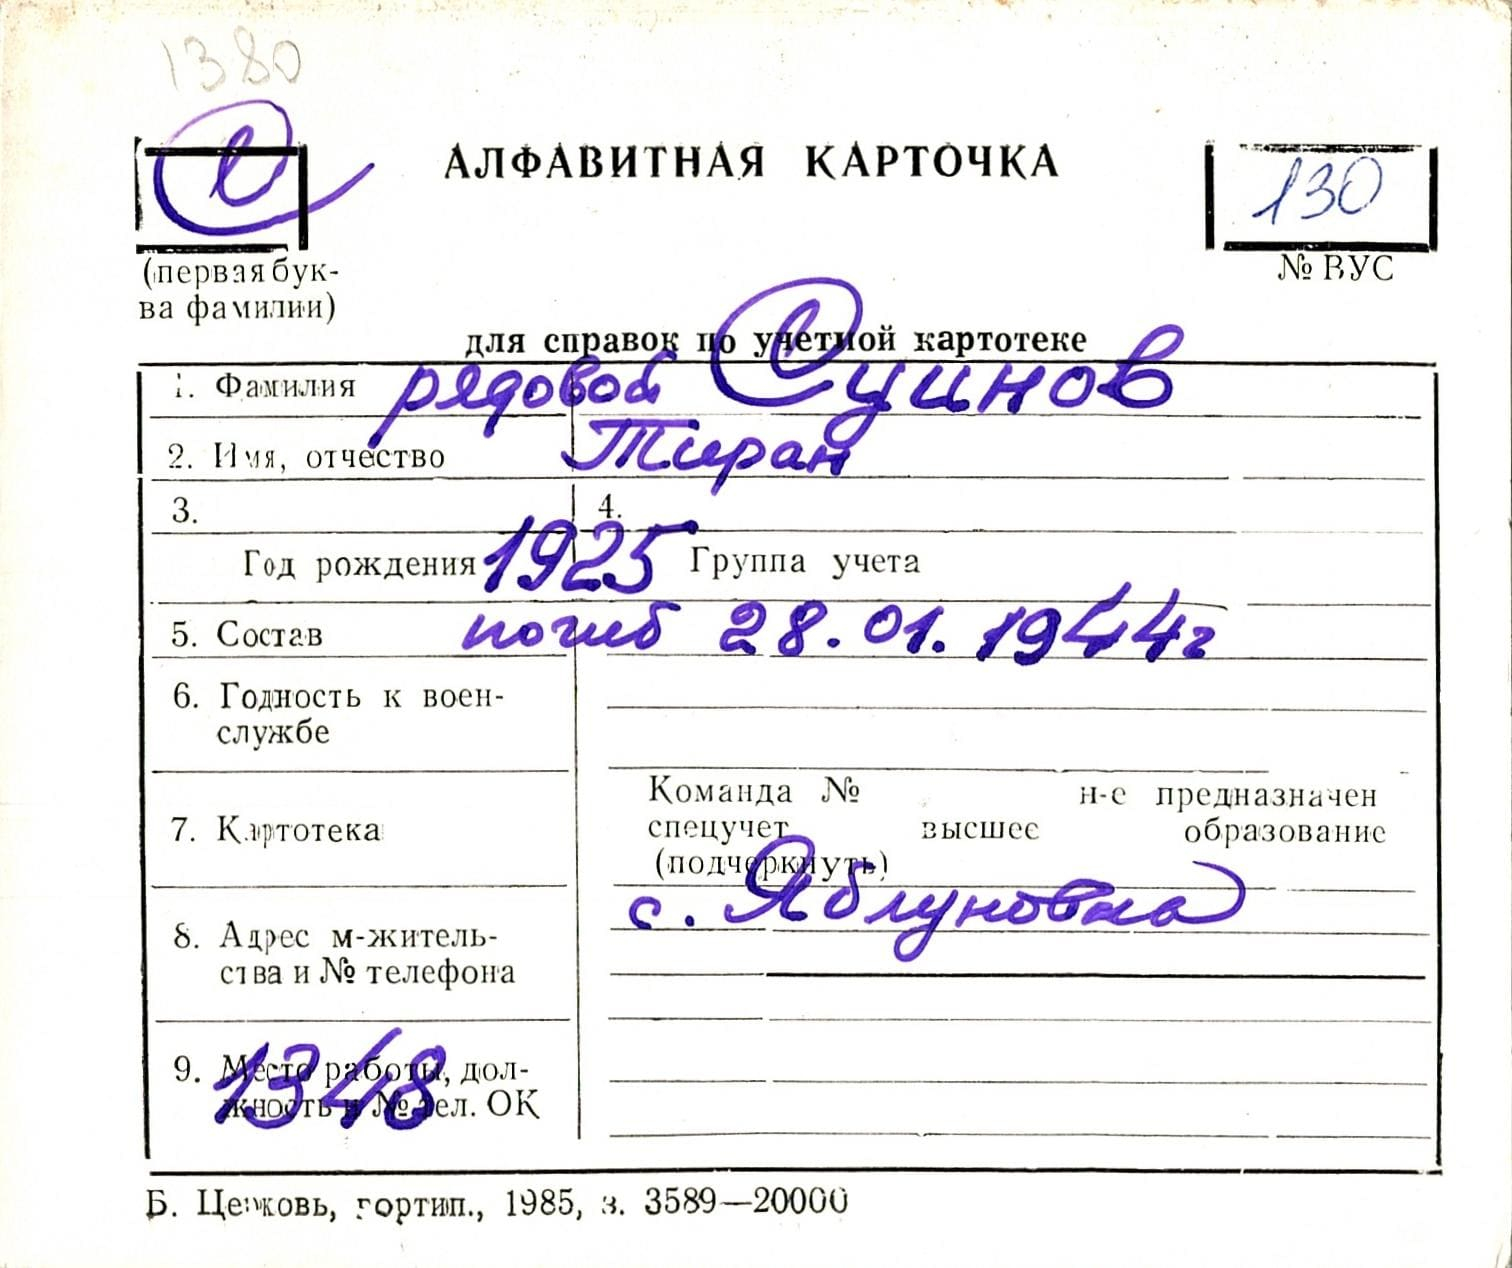 1380
С
АЛФАВИТНАЯ КАРТОЧКА
130
(первая бук-
ва фамилии)
№ ВУС
для справок по учетной картотеке
1. Фамилия рядовой Суинов
2. Имя, отчество Тиран
3. 4.
Год рождения 1925 Группа учета
5. Состав погиб 28.01.1944г
6. Годность к воен-
службе
Команда № н-е предназначен
7. Картотека спецучет высшее образование
(подчеркнуть)
с. Яблуновка
8. Адрес м-житель-
ства и № телефона
9. Место работы, дол-
жность и № тел. ОК
1348
Б. Церковь, гортип., 1985, з. 3589—20000